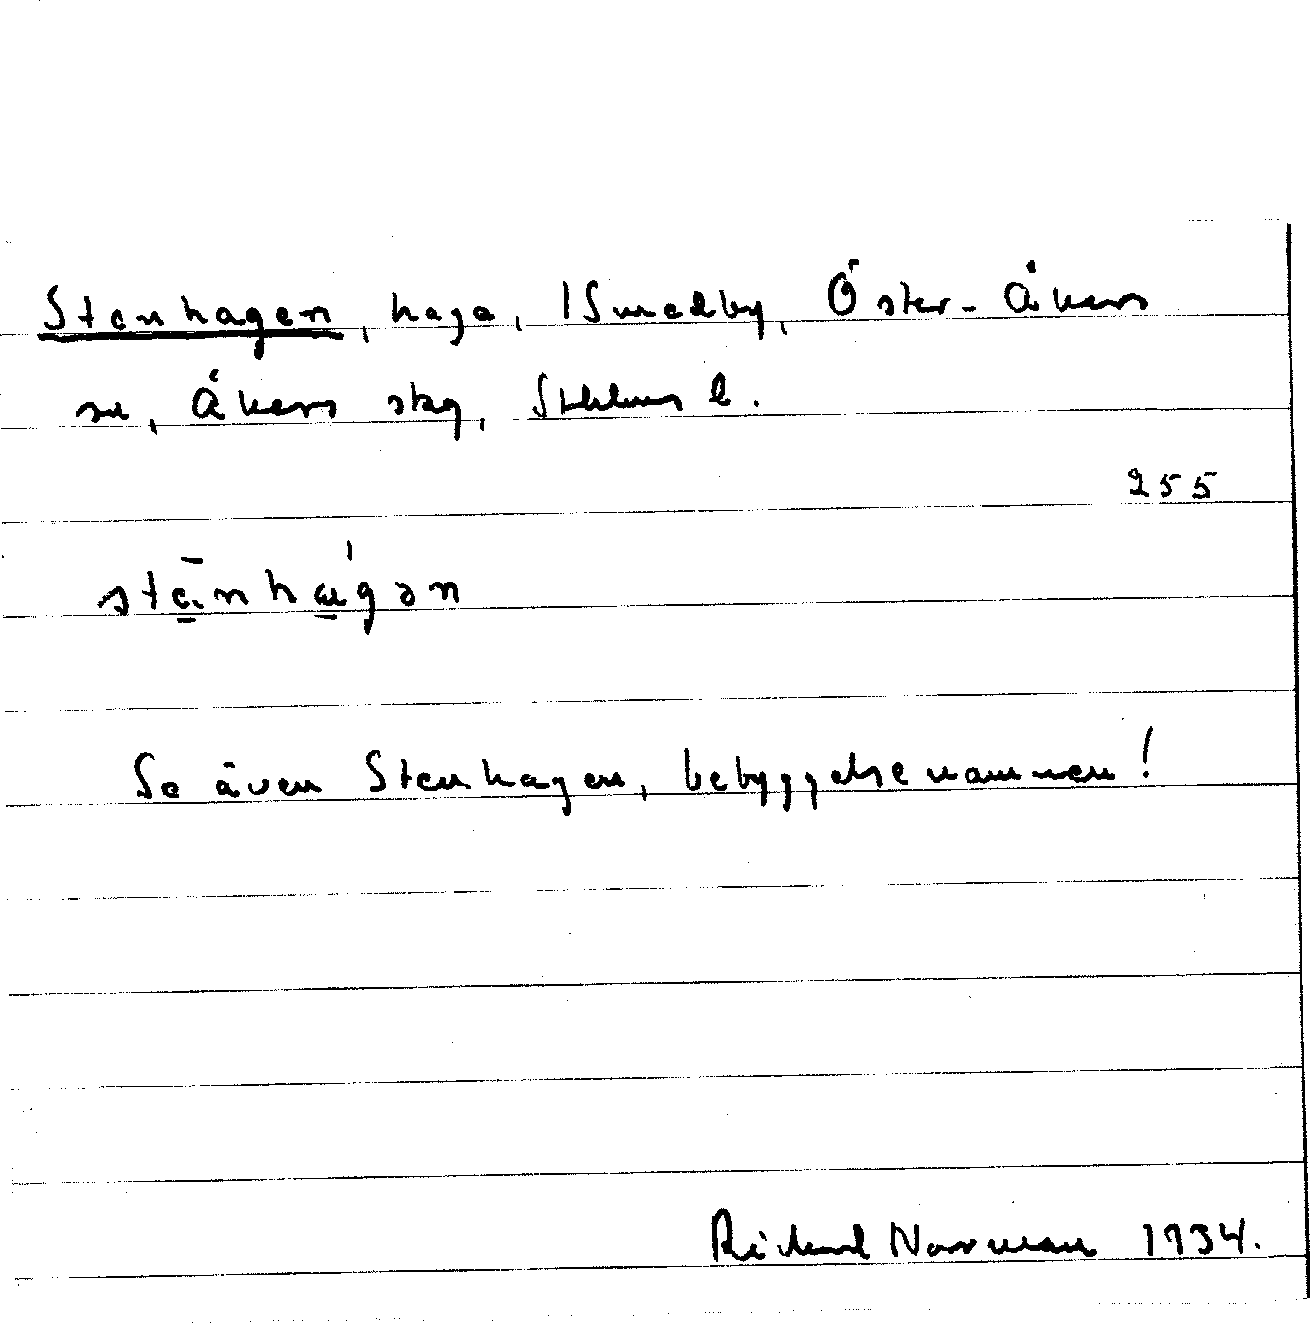 Stenhagen, hage, 1 Smedby, Öster-Åkers
sn, Åkers skg, Sthlms l.
255
stēnhágən
Se även Stenhagen, bebyggelsenamnen!
Rickard Norrman 1934.